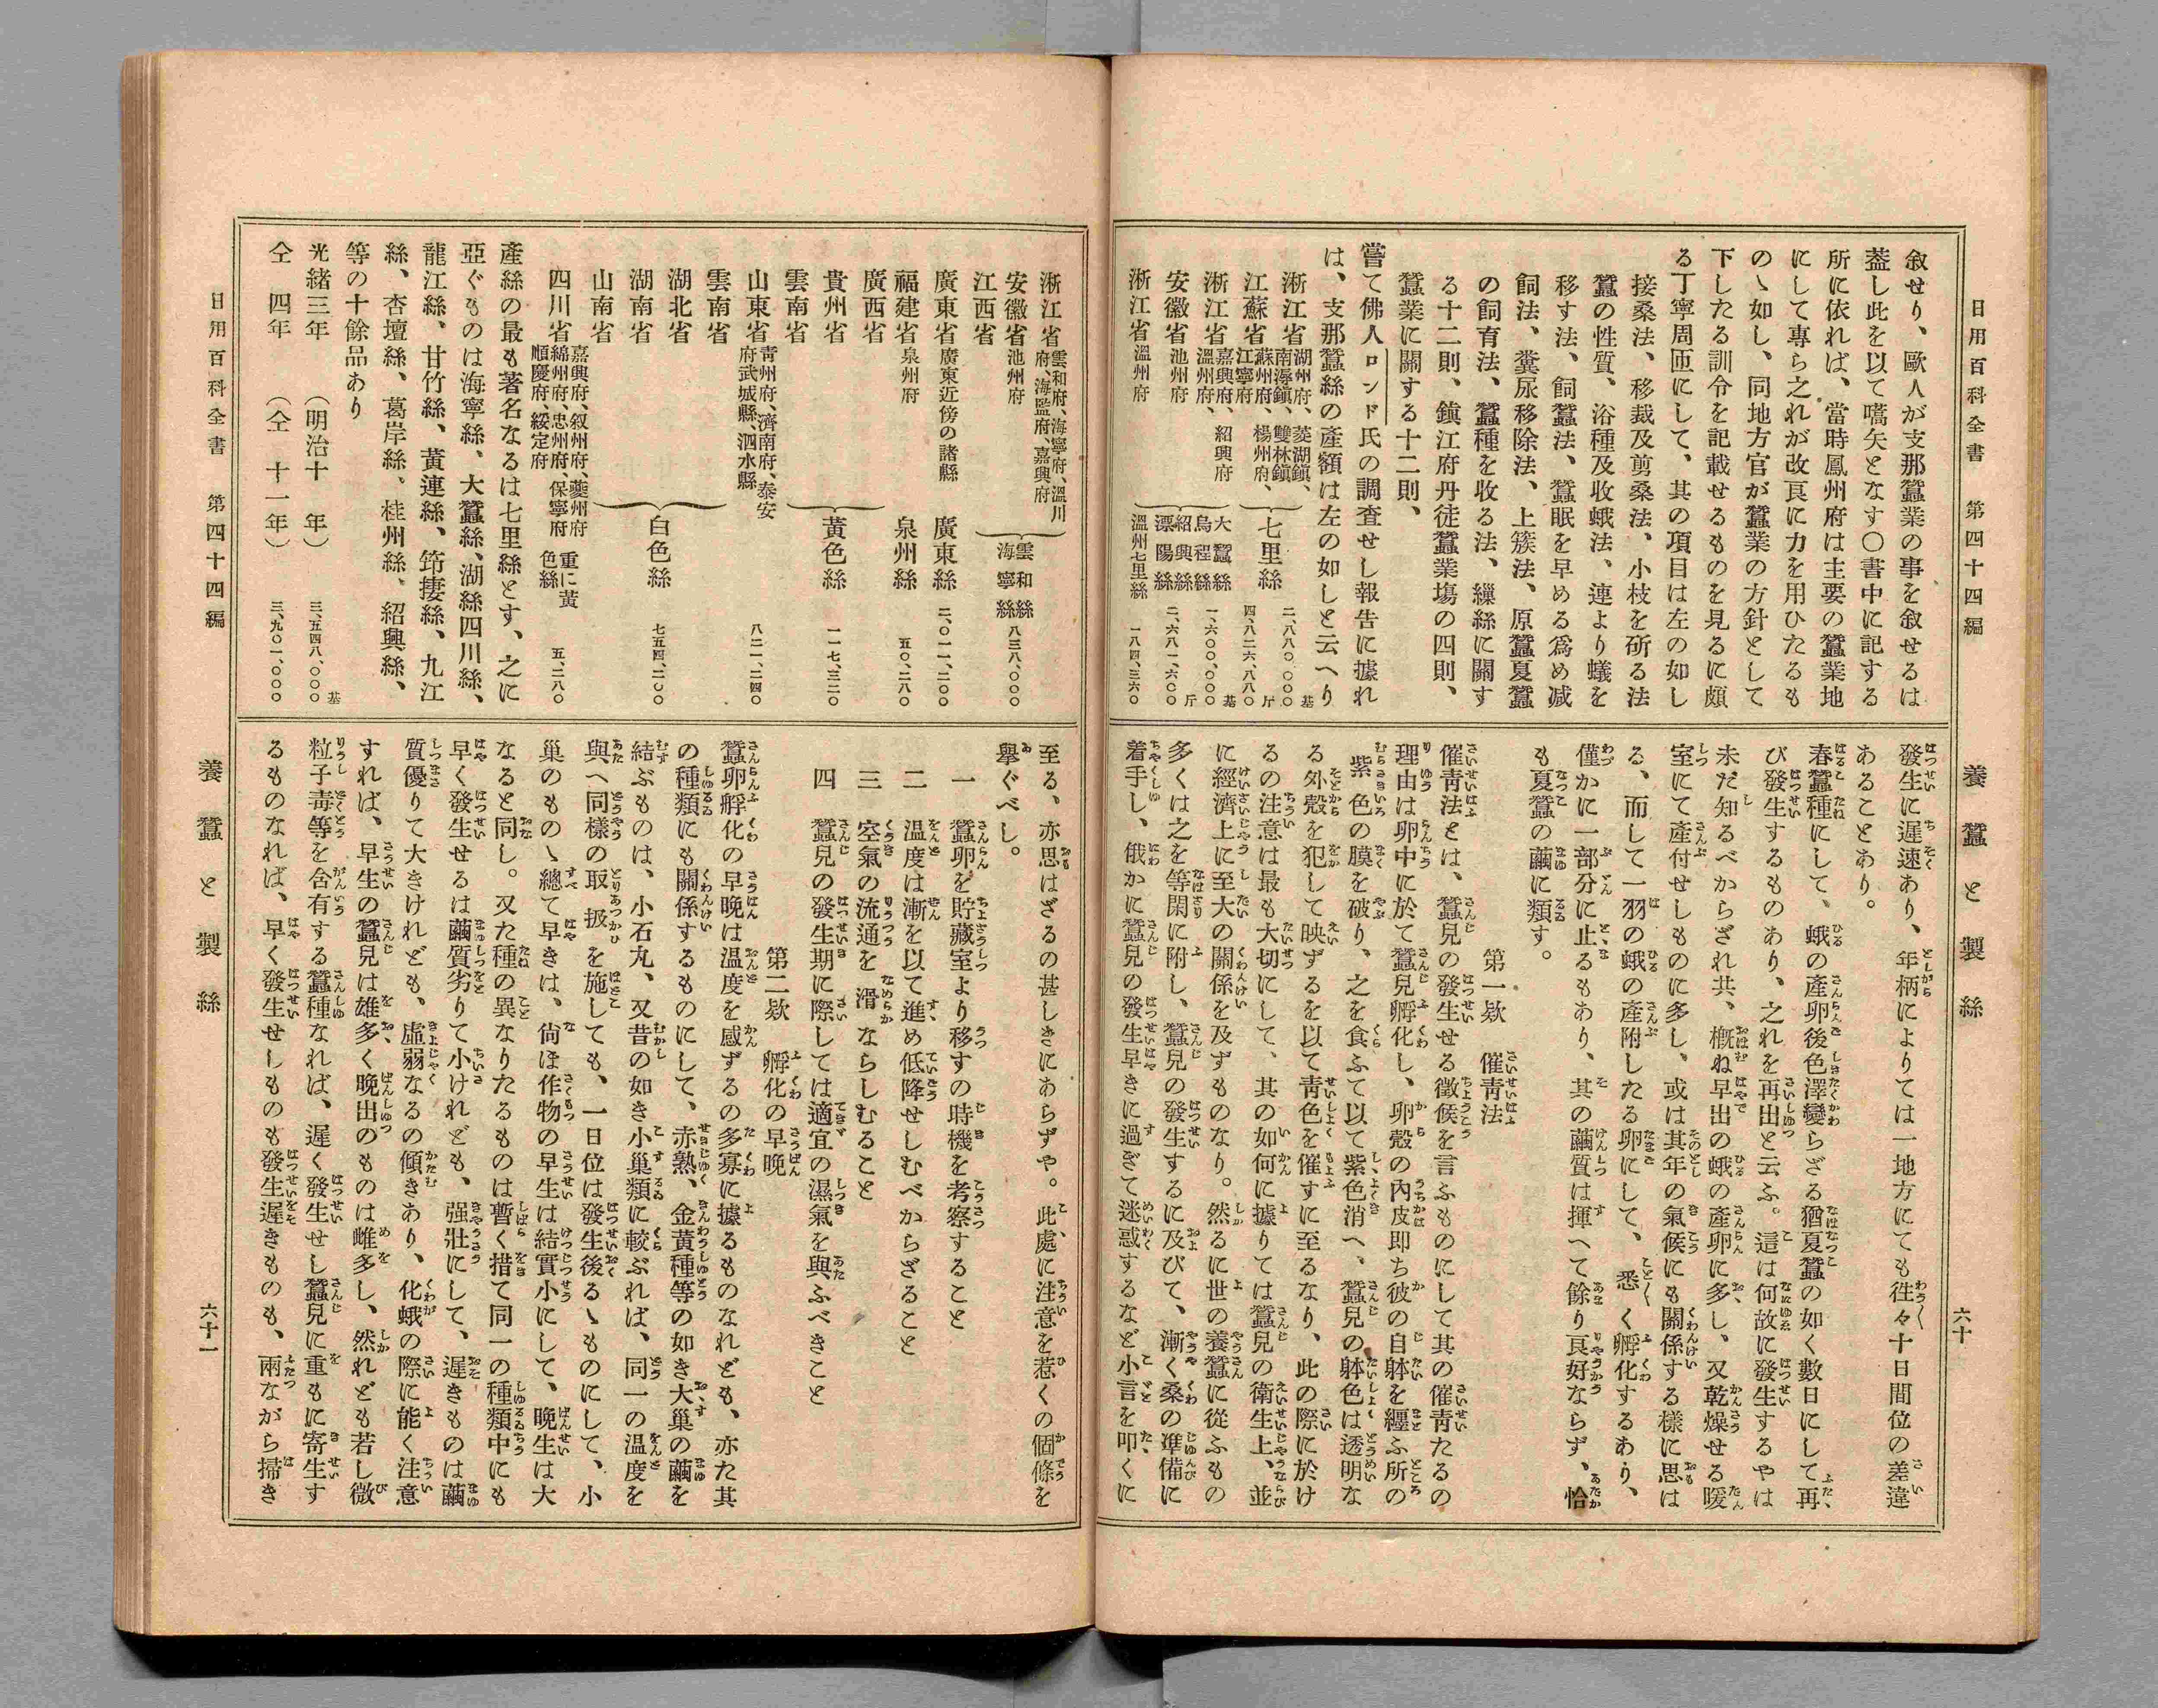 日用百科全書　第四十四編
叙せり、歐人が支那蠶業の事を叙せるは
葢し此を以て嚆矢となす〇書中に記する
所に依れば、當時鳳州府は主要の蠶業地
にして専ら之れが改良に力を用ひたるも
のゝ如し、同地方官が蠶業の方針として
下したる訓令を記載せるものを見るに頗
る丁寧周匝にして、其の項目は左の如し
接桑法、移裁及剪桑法、小枝を斫る法
蠶の性質、浴種及收蛾法、連より蟻を
移す法、飼蠶法、蠶眠を早める爲め減
飼法、糞尿移除法、上簇法、原蠶夏蠶
の飼育法、蠶種を收る法、繅絲に關す
る十二則、鎭江府丹徒蠶業塲の四則、
蠶業に關する十二則、
嘗て佛人ロンド氏の調査せし報告に據れ
は、支那蠶絲の產額は左の如しと云へり
淅江省　湖州府、菱湖鎭、南潯鎭、雙林鎭　七里絲　二、八八〇、〇〇〇基
江蘇省　蘇州府、楊州府、江寧府　四、八二六、八八〇斤
淅江省　嘉興府、紹興府　溫州府、　大蠶絲　烏程絲　一、六〇〇、〇〇〇基
安徽省　池州府　紹興絲　漂陽絲　二、六八一、六〇〇斤
淅江省　溫州府　溫州七里絲　一八四、三六〇
養蠶と製絲
六十
發生に遲速あり、年柄によりては一地方にても徃々十日間位の差違
あることあり。
春蠶種にして、蛾の產卵後色澤變らざる猶夏蠶の如く數日にして再
び發生するものあり、之れを再出と云ふ。這は何故に發生するやは
未だ知るべからざれ共、槪ね早出の蛾の產卵に多し、又乾燥せる暖
室にて產付せしものに多し、或は其年の氣候にも關係する樣に思は
る、而して一羽の蛾の產附したる卵にして、悉く孵化するあり、
僅かに一部分に止るもあり、其の繭質は揮へて餘り良好ならず、恰
も夏蠶の繭に類す。
第一欵　催靑法
催靑法とは、蠶兒の發生せる徵候を言ふものにして其の催靑たるの
理由は卵中に於て蠶兒孵化し、卵殼の內皮即ち彼の自躰を纒ふ所の
紫色の膜を破り、之を食ふて以て紫色消へ、蠶兒の躰色は透明な
る外殼を犯して映ずるを以て靑色を催すに至るなり、此の際に於け
るの注意は最も大切にして、其の如何に據りては蠶兒の衛生上、並
に經濟上に至大の關係を及ずものなり。然るに世の養蠶に從ふもの
多くは之を等閑に附し、蠶兒の發生するに及びて、漸く桑の準備に
着手し、俄かに蠶兒の發生早きに過ぎて迷惑するなど小言を叩くに
淅江省　雲和府、海寧府、溫川府、海監府、嘉興府　雲和絲　八三八、〇〇〇
安徽省　池州府　海寧絲
江西省
廣東省　廣東近傍の諸縣　廣東絲　二、〇一一、二〇〇
福建省　泉州府　泉州絲　五〇、二八〇
廣西省
貴州省　黃色絲　一一七、三二〇
雲南省
山東省　靑州府、濟南府、泰安府武城縣、泗水縣　八二一、二四〇
雲南省
湖北省　白色絲　七五四、二〇〇
湖南省
山南省
四川省　嘉興府、叙州府、夔州府　綿州府、忠州府、保寧府　順慶府、綏定府　重に黃色絲　五、二八〇
產絲の最も著名なるは七里絲とす、之に
亞ぐものは海寧絲、大蠶絲、湖絲四川絲、
龍江絲、甘竹絲、黃連絲、筇捿絲、九江
絲、杏壇絲、葛岸絲、桂州絲、紹興絲、
等の十餘品あり
光緒三年　（明治十　年）　三、五四八、〇〇〇基
仝　四年　（仝　十一年）　三、九〇一、〇〇〇
日用百科全書　第四十四編
至る、亦思はざるの甚しきにあらずや。此處に注意を惹くの個條を
擧ぐべし。
一　蠶卵を貯藏室より移すの時機を考察すること
二　溫度は漸を以て進め低降せしむべからざること
三　空氣の流通を滑ならしむること
四　蠶兒の發生期に際しては適宜の濕氣を與ふべきこと
第二欵　孵化の早晩
蠶卵孵化の早晩は溫度を感ずるの多寡に據るものなれども、亦た其
の種類にも關係するものにして、赤熟、金黃種等の如き大巢の繭を
結ぶものは、小石丸、又昔の如き小巢類に較ぶれば、同一の溫度を
與へ同樣の取扱を施しても、一日位は發生後るゝものにして、小
巢のものゝ總て早きは、尙ほ作物の早生は結實小にして、晩生は大
なると同し。又た種の異なりたるものは暫く措て同一の種類中にも
早く發生せるは繭質劣りて小けれども、强壯にして、遲きものは繭
質優りて大きけれども、虛弱なるの傾きあり、化蛾の際に能く注意
すれば、早生の蠶兒は雄多く晩出のものは雌多し、然れども若し微
粒子毒等を含有する蠶種なれば、遲く發生せし蠶兒に重もに寄生す
るものなれば、早く發生せしものも發生遲きものも、兩ながら掃き
養蠶と製絲
六十一